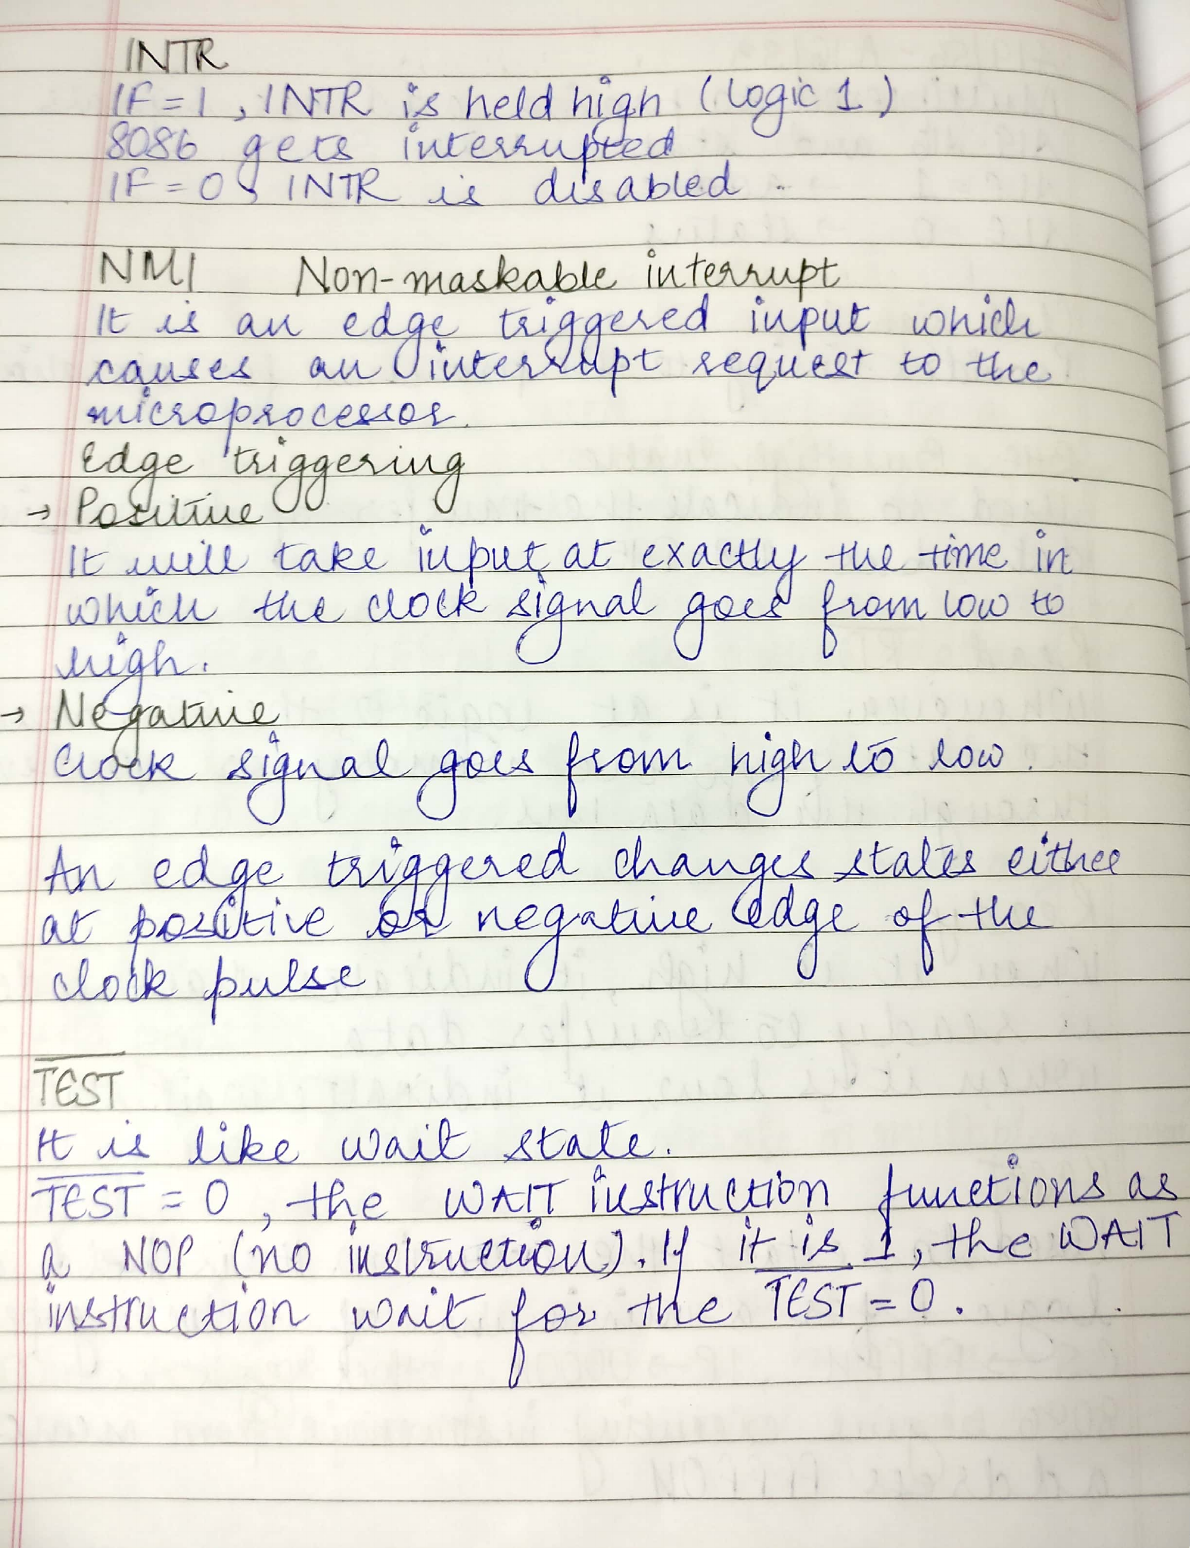 INTR
IF = 1, INTR is held high (logic 1)
8086 gets interrupted
IF = 0, INTR is disabled
NMI Non-maskable interrupt
It is an edge triggered input which
causes an interrupt request to the
microprocessor.
Edge triggering
→ Positive
It will take input at exactly the time in
which the clock signal goes from low to
high.
→ Negative
Clock signal goes from high to low.
An edge triggered changes states either
at positive or negative edge of the
clock pulse
T̅E̅S̅T̅
It is like wait state.
T̅E̅S̅T̅ = 0, the WAIT instruction functions as
a NOP (no instruction). If it is 1, the WAIT
instruction wait for the T̅E̅S̅T̅ = 0.